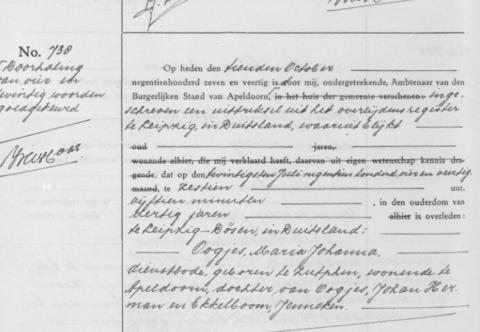 No. 738
Doorhaling
van vier en
twintig woorden
goedgekeurd
Op heden den tienden October
negentienhonderd zeven en veertig is door mij, ondergeteekende, Ambtenaar van den
Burgerlijken Stand van Apeldoorn, in het huis der gemeente verschenen: inge-
schreven een uittreksel uit het overlijdensregister
te Leipzig, in Duitsland, waaruit blijkt
oud jaren,
wonende alhier, die mij verklaard heeft, daarvan uit eigen wetenschap kennis dra-
gende, dat op den twintigsten Juli negentienhonderd vier en veertig
maand, te zestien uur.
vijftien minuten, in den ouderdom van
veertig jaren alhier is overleden:
te Leipzig-Dösen, in Duitsland:
Oogjes, Maria Johanna,
dienstbode, geboren te Zutphen, wonende te
Apeldoorn, dochter van Oogjes, Johan Her-
man en Ekkelboom, Jenneken.